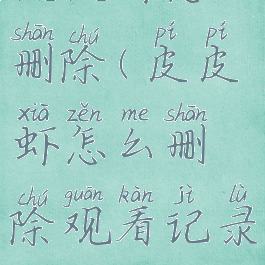 shān chú pí pí
删除(皮皮
xiā zěn me shān
虾怎么删
chú guān kàn jì lù
除观看记录